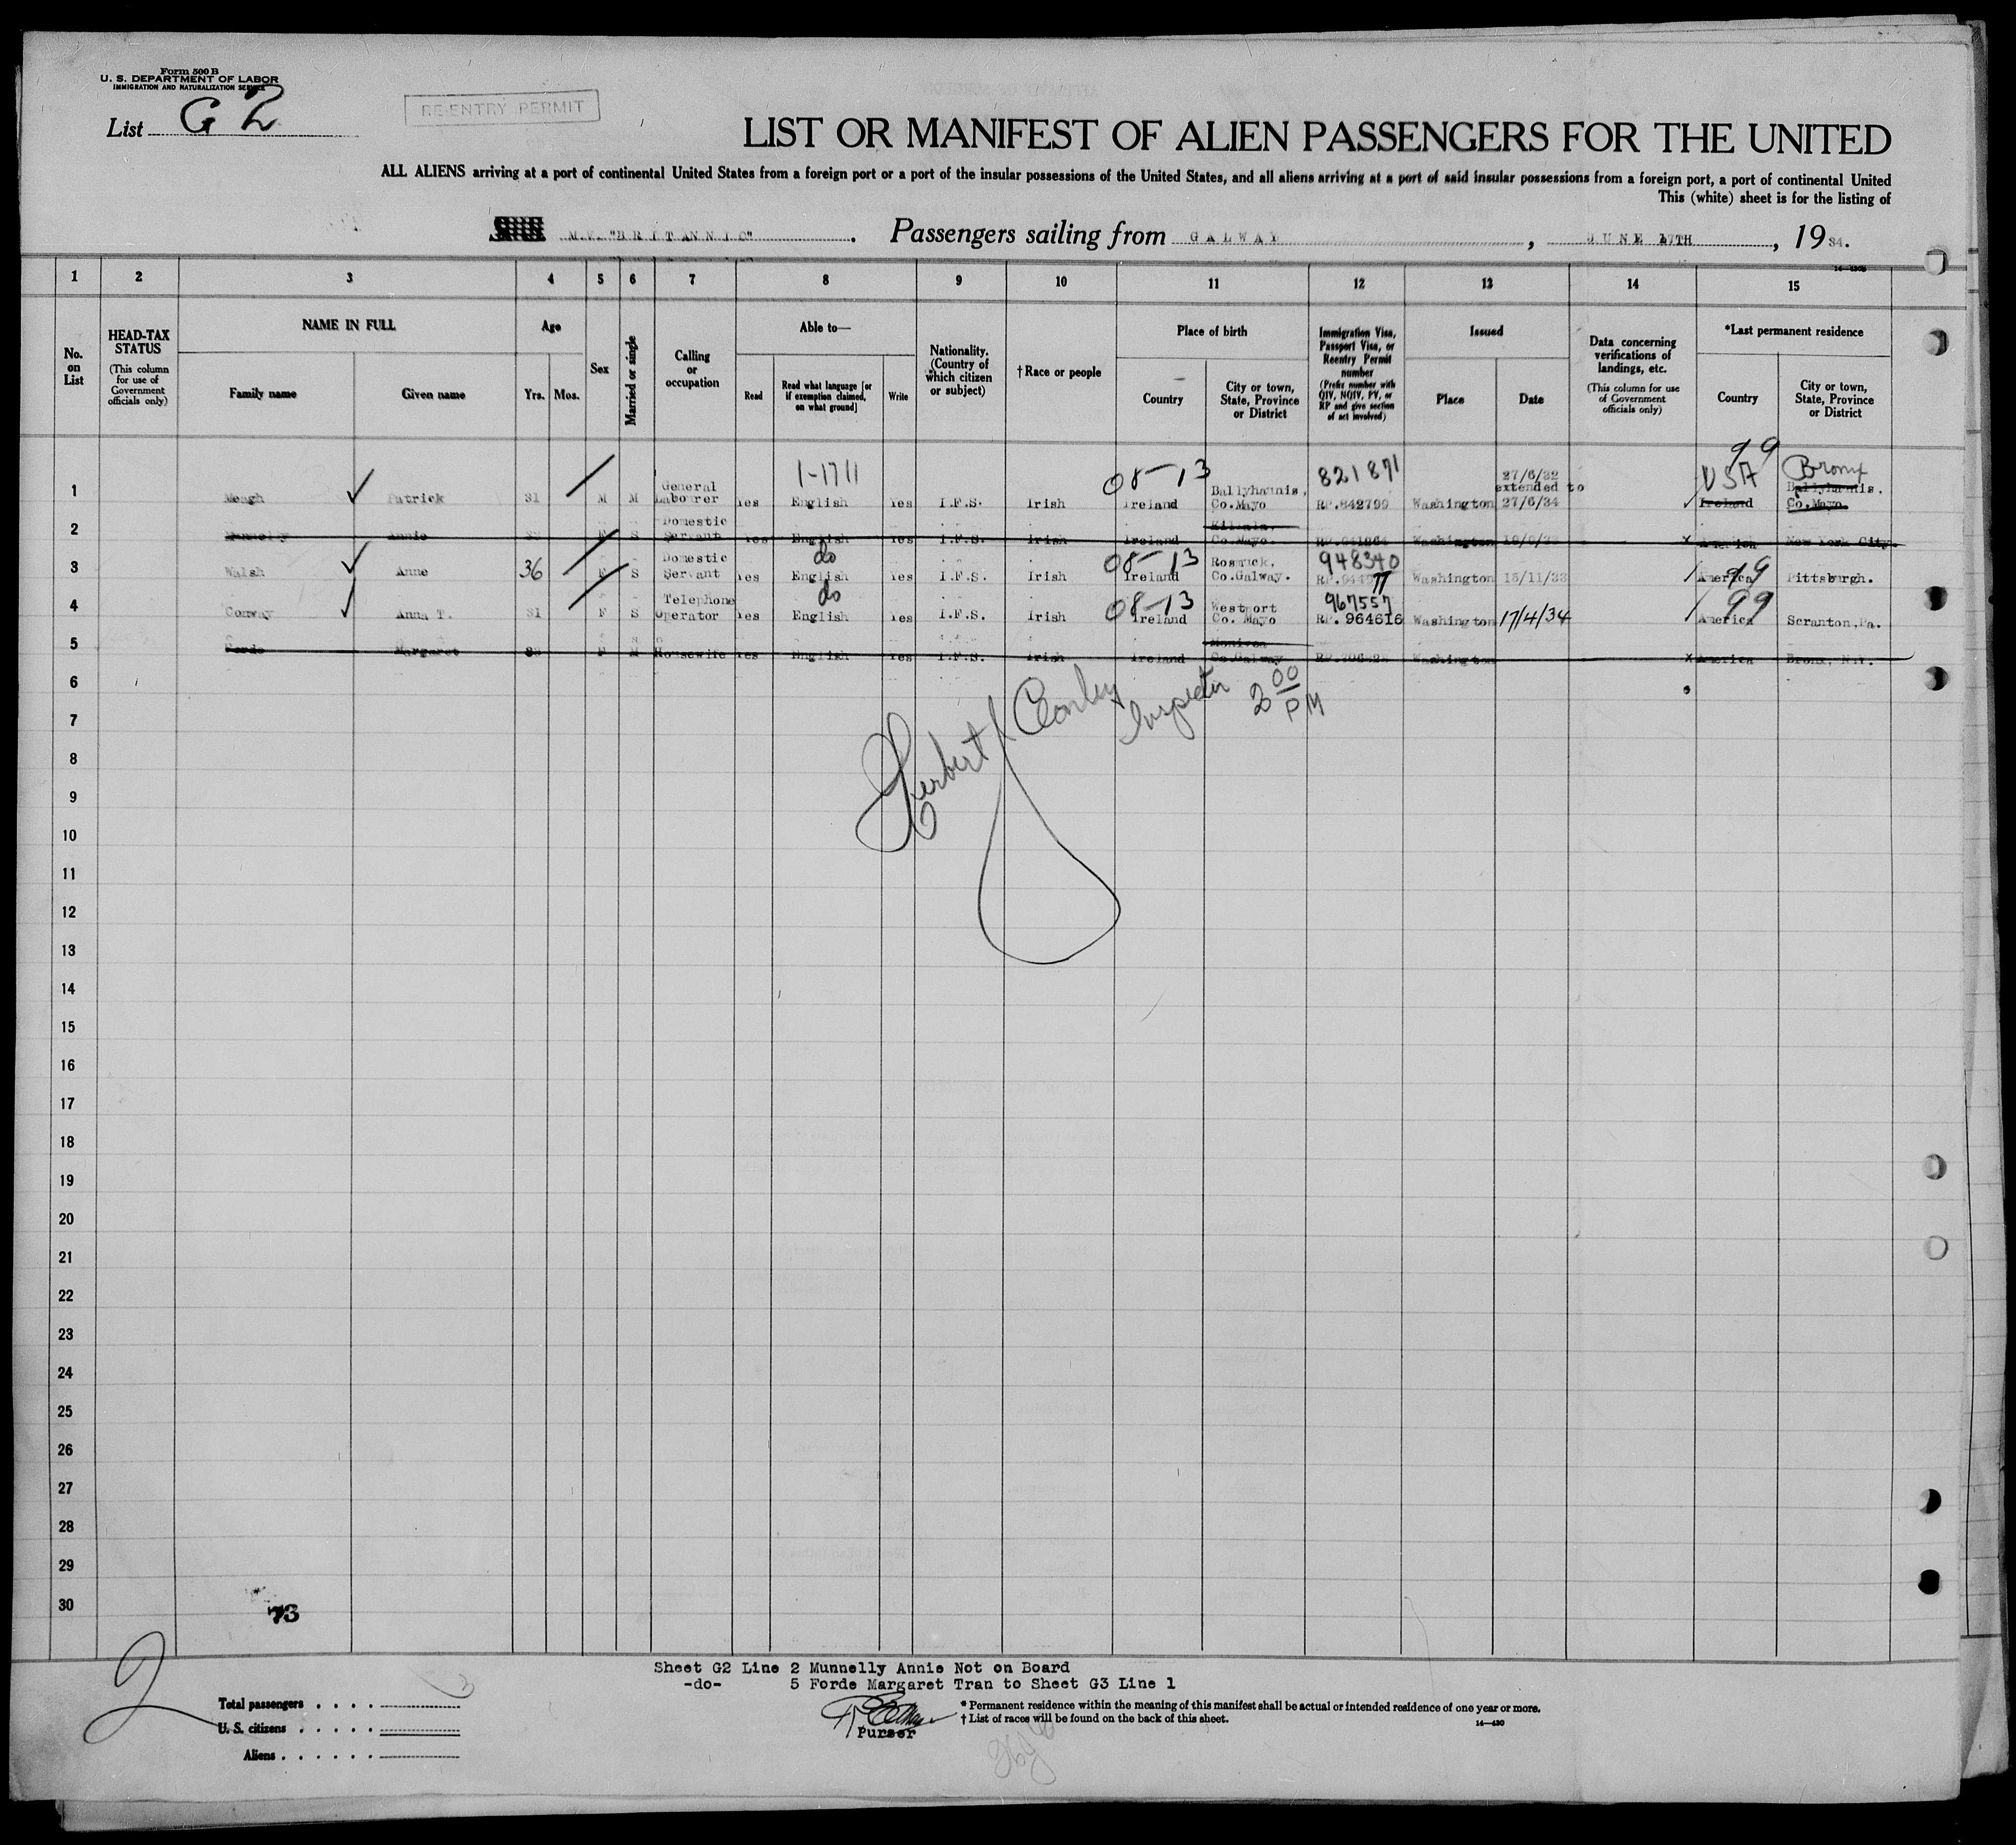 Form 500 B
U. S. DEPARTMENT OF LABOR
IMMIGRATION AND NATURALIZATION SERVICE
List G 2
RE-ENTRY PERMIT
LIST OR MANIFEST OF ALIEN PASSENGERS FOR THE UNITED
ALL ALIENS arriving at a port of continental United States from a foreign port or a port of the insular possessions of the United States, and all aliens arriving at a port of said insular possessions from a foreign port, a port of continental United
This (white) sheet is for the listing of
M.V. "BRITANNIC". Passengers sailing from GALWAY, JUNE 17TH, 1934.
14—1208
1 2 3 4 5 6 7 8 9 10 11 12 13 14 15
No. on List
HEAD-TAX STATUS
(This column for use of Government officials only)
NAME IN FULL
Family name Given name
Age
Yrs. Mos.
Sex
Married or single
Calling or occupation
Able to—
Read
Read what language [or if exemption claimed, on what ground]
Write
Nationality. (Country of which citizen or subject)
†Race or people
Place of birth
Country
City or town, State, Province or District
Immigration Visa, Passport Visa, or Reentry Permit number
(Prefix number with QIV, NQIV, PV, or RP and give section of act involved)
Issued
Place Date
Data concerning verifications of landings, etc.
(This column for use of Government officials only)
*Last permanent residence
Country
City or town, State, Province or District
1-1711 08-13 821871 27/6/32 99 USA Bronx
General extended to
1 Meagh Patrick 31 M M Labourer Yes English Yes I.F.S. Irish Ireland Ballyhaunis, Co.Mayo RP.842799 Washington 27/6/34 Ireland Ballyhaunis, Co.Mayo
2 Munnelly Annie F S Domestic Servant Yes English Yes I.F.S. Irish Ireland Killala, Co.Mayo. Washington America New York City.
do 08-13 948340 99
3 Walsh Anne 36 F S Domestic Servant Yes English Yes I.F.S. Irish Ireland Rosmuck, Co.Galway. Washington 15/11/33 America Pittsburgh.
do 08-13 967557 99
4 Conway Anna T. 31 F S Telephone Operator Yes English Yes I.F.S. Irish Ireland Westport Co. Mayo RP. 964616 Washington 17/4/34 America Scranton, Pa.
5 Forde Margaret F M Housewife Yes English Yes I.F.S. Irish Ireland Co.Galway Washington America Bronx, N.Y.
6
Herbert J Conley Inspector 2 00 PM
7
8
9
10
11
12
13
14
15
16
17
18
19
20
21
22
23
24
25
26
27
28
29
30
73
2
Sheet G2 Line 2 Munnelly Annie Not on Board
-do- 5 Forde Margaret Tran to Sheet G3 Line 1
Purser
Total passengers
U. S. citizens
Aliens
3
* Permanent residence within the meaning of this manifest shall be actual or intended residence of one year or more.
† List of races will be found on the back of this sheet.
14—430